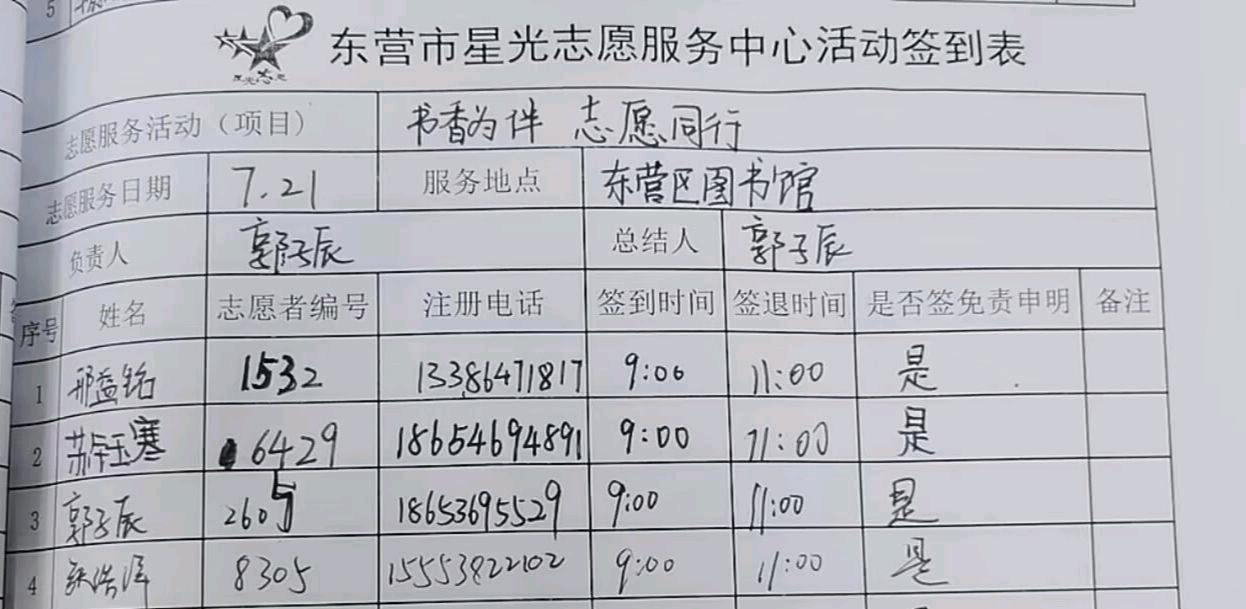 5
星光志愿
东营市星光志愿服务中心活动签到表
志愿服务活动（项目） 书香为伴 志愿同行
志愿服务日期 7.21 服务地点 东营区图书馆
负责人 郭子辰 总结人 郭子辰
序号 姓名 志愿者编号 注册电话 签到时间 签退时间 是否签免责申明 备注
1 邢益铭 1532 13386471817 9:00 11:00 是
2 苏钰寒 6429 18654694891 9:00 11:00 是
3 郭子辰 2605 18653695529 9:00 11:00 是
4 张浩泽 8305 15553822102 9:00 11:00 是